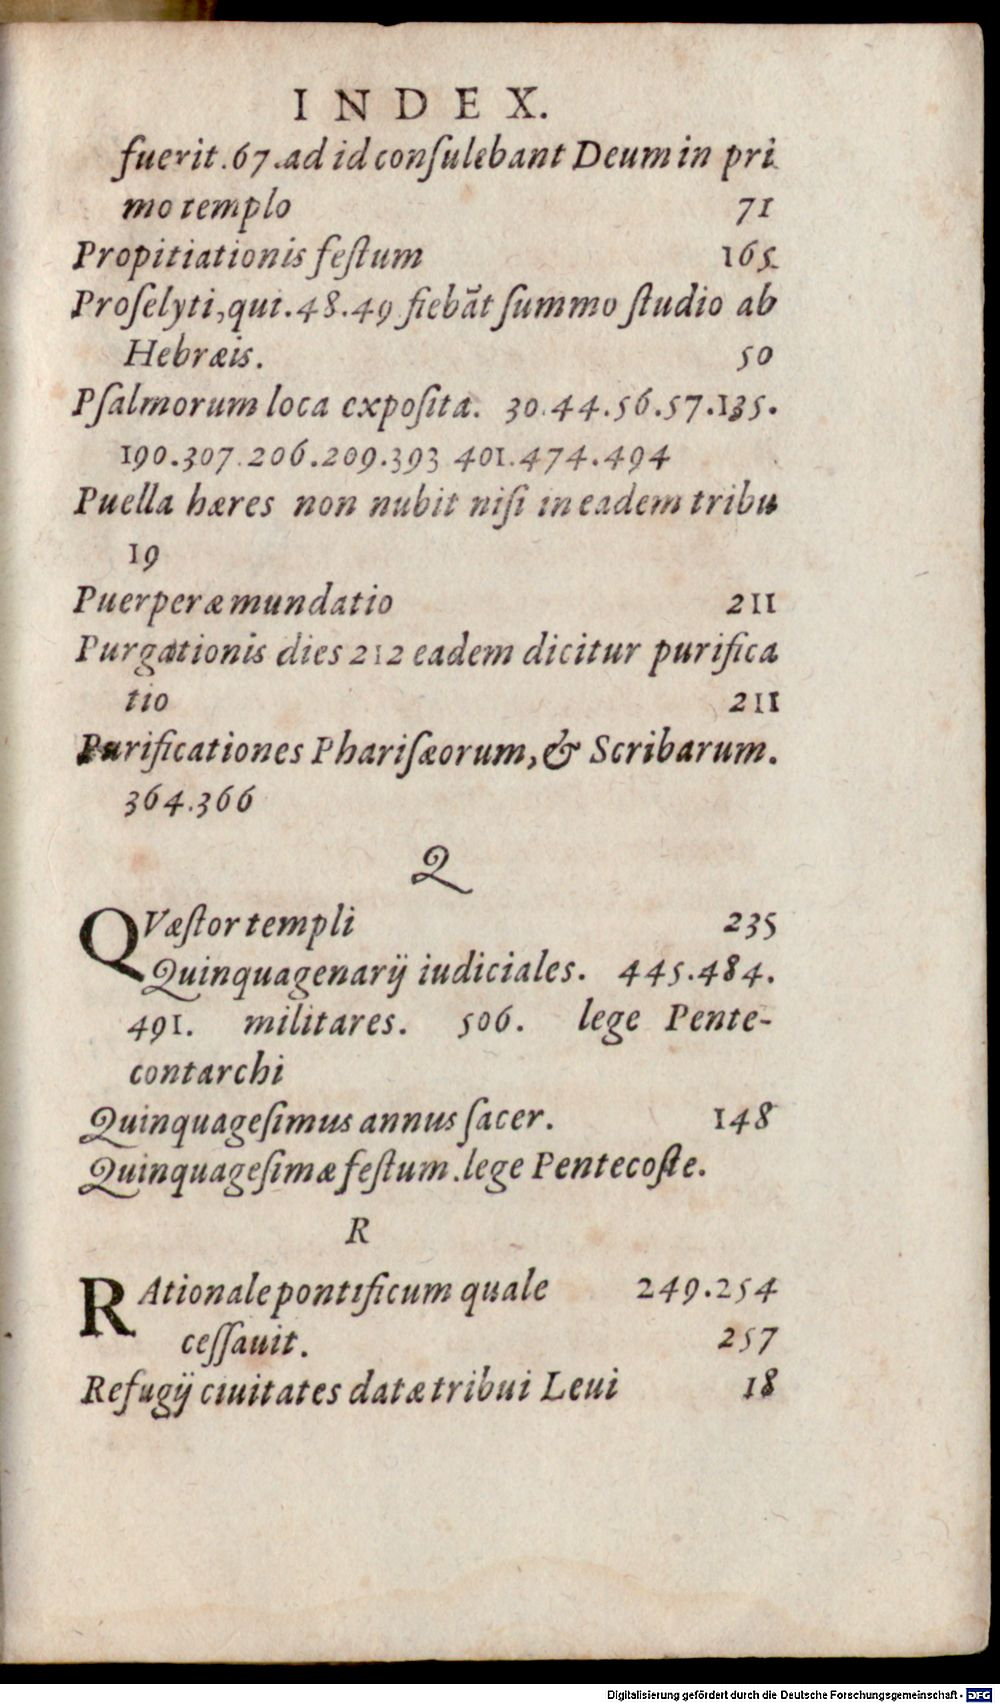 INDEX.
fuerit.67.ad id conſulebant Deum in pri
mo templo 71
Propitiationis feſtum 165
Proſelyti,qui.48.49 fiebāt ſummo ſtudio ab
Hebræis. 50
Pſalmorum loca expoſita. 30.44.56.57.135.
190.307.206.209.393 401.474.494
Puella hæres non nubit niſi in eadem tribu
19
Puerperæ mundatio 211
Purgationis dies 212 eadem dicitur purifica
tio 211
Purificationes Phariſæorum,& Scribarum.
364.366
Q
QVæſtor templi 235
Quinquagenarij iudiciales. 445.484.
491. militares. 506. lege Pente-
contarchi
Quinquageſimus annus ſacer. 148
Quinquageſimæ feſtum.lege Pentecoſte.
R
RAtionale pontificum quale 249.254
ceſſauit. 257
Refugij ciuitates datæ tribui Leui 18
Digitalisierung gefördert durch die Deutsche Forschungsgemeinschaft - DFG